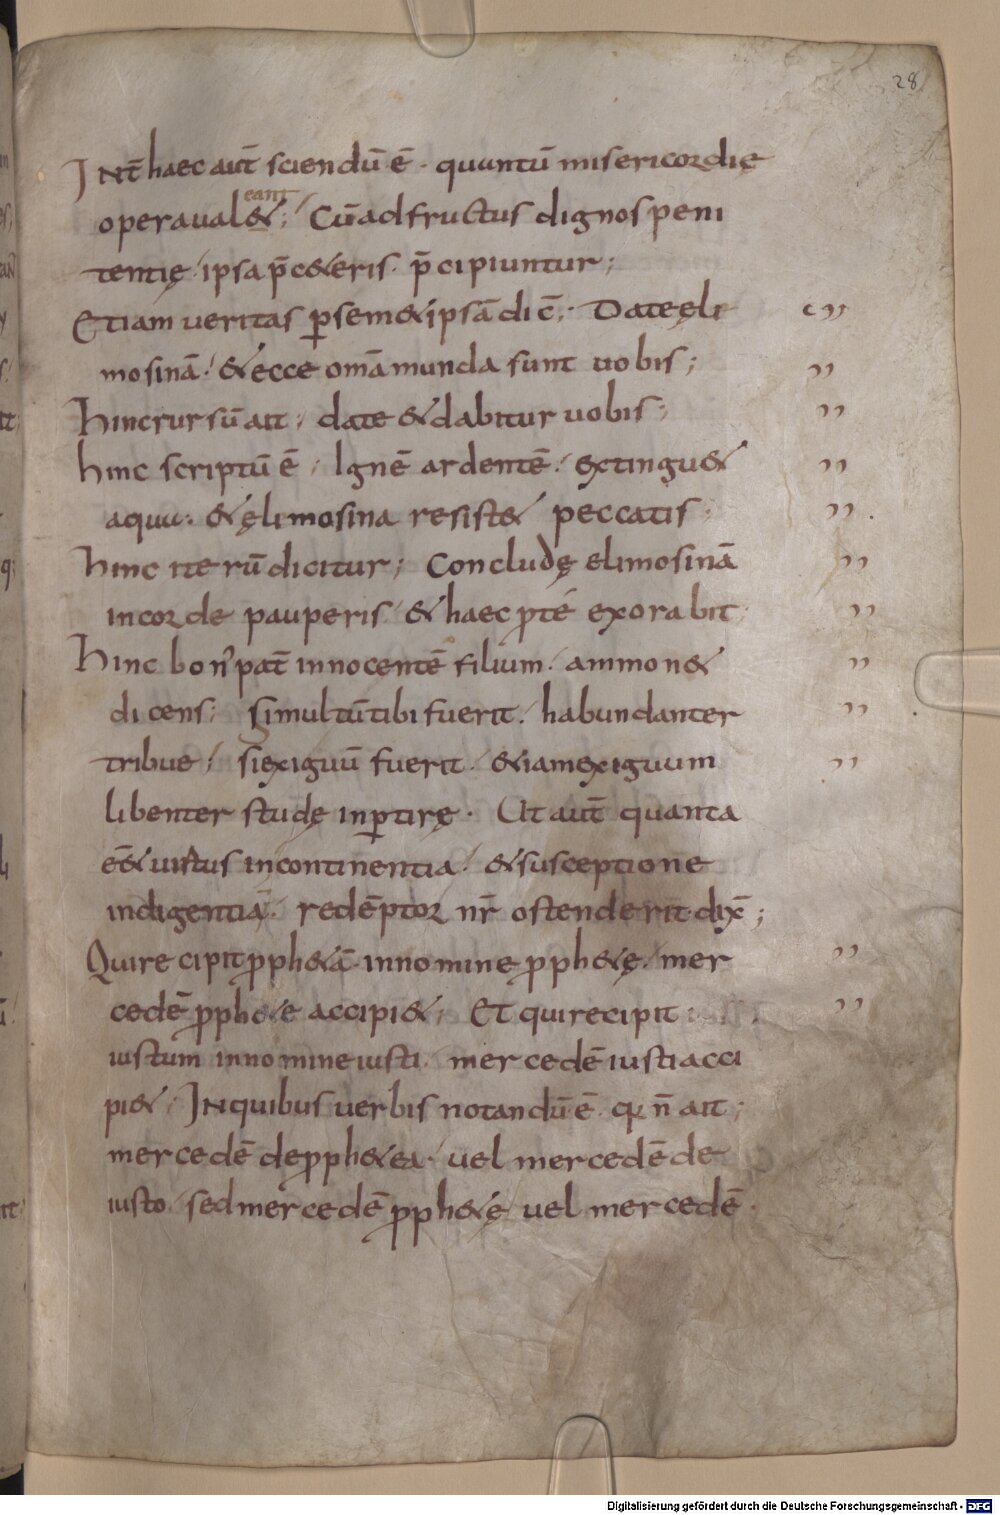 28
INt̄ haec aut̄ sciendū ē · quantū misericordię
opera ual&; Cū ad fructus dignos peni
eant
tentię / ipsa p̄c&eris · p̄cipiuntur;
Etiam ueritas p̱ sem&ipsā dic̄; Date ęli
mosinā · / & ecce om̄a munda sunt uobis;
Hinc rursū ait; date & dabitur uobis;
hinc scriptū ē / Ignē ardentē / extingu&
aqua · & ęlimosina resist& peccatis;
Hinc iterū dicitur; Concludę elimosinā
in corde pauperis / & haec p̱ te exorabit
Hinc bon' pat̄ innocentē filium · ammon&
dicens; Si multū tibi fuerit · habundanter
tribue; si exiguū fuerit / &iam exiguum
libenter studę inp̱tirę · Ut aut̄ quanta
ēē& uirtus in continentia · & susceptione
indigentiā · redēptor nr̄ ostenderit dix̄;
Qui recipit pph&ā in nomine pph&ę / mer
cedē pph&e accipi&; Et qui recipit
iustum in nomine iusti / mercedē iusti acci
pi& / IN quibus uerbis notandū ē · qꝛ n̄ ait;
mercedē de pph&a · uel mercedē de
iusto / sed mercedē pph&ę uel mercedē ·
Digitalisierung gefördert durch die Deutsche Forschungsgemeinschaft - DFG